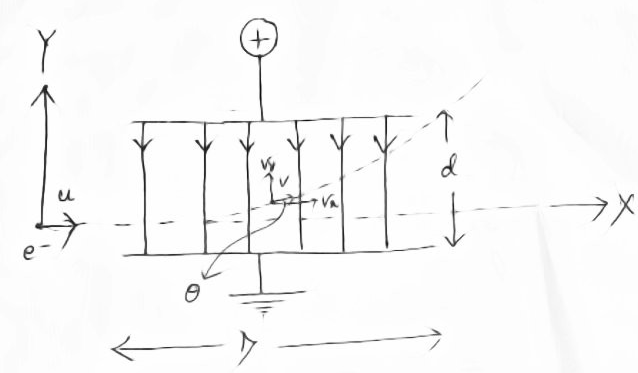 Y
+
u
e-
Vy
V
Vx
d
X
θ
D